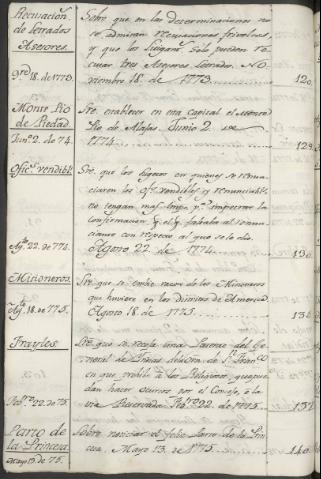 Recusación
de Letrados
Asesores.
9re 18. de 1773.
Sobre que en las determinaciones no
se admitan recusaciones frivolas,
y que los litigantes solo puedan re
cusar tres Asesores Letrados. No
viembre 18. de 1773.
120.
Monte Pío
de Piedad.
Jun.o 2. de 74.
Sre. establecer en esta capital el
Pio de Junio 2. de
1774.
129.
Ofic.s vendibles
Ag.to 22. de 774.
Sre. que los sugetos en quienes se renun
ciaren los ofs. vendibles y renunciables
no tengan mas para impetrar la
confirmacion q.e el q.e faltaba al renun
ciante con respecto al que solo dio.
Agosto 22. de 1774.
130.
Misioneros.
Ag.to 18. de 775.
Sre. que se embie razon de los Misioneros
que huviere en los dominios de America
Agosto 18. de 1775.
Frayles.
Feb.ro 22. de 75.
Sre. que se recoja una Patente del Ge
neral de la orn. de S.n Fran.co
en que prohibe a los Religiosos que pue
dan hacer ocursos por el Consejo, o la
via Reservada. Feb.ro 22. de 1775.
Parto de
la Princesa
Mayo 13. de 75.
Sobre noticiar el feliz Parto de la Prin
cesa. Mayo 13. de 1775.
140.